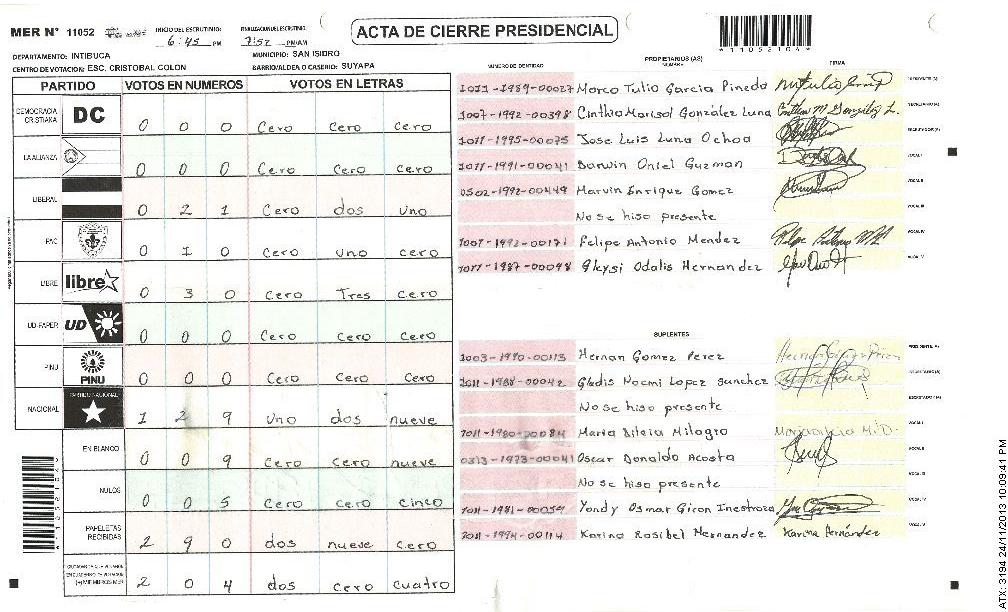 MER Nº 11052
INICIO DEL ESCRUTINIO:
6:45 PM
FINALIZACION DEL ESCRUTINIO:
7:52 PM/AM
ACTA DE CIERRE PRESIDENCIAL
*11052104*
DEPARTAMENTO: INTIBUCA
MUNICIPIO: SAN ISIDRO
CENTRO DE VOTACION: ESC. CRISTOBAL COLON
BARRIO/ALDEA O CASERIO: SUYAPA
PARTIDO VOTOS EN NUMEROS VOTOS EN LETRAS
DEMOCRACIA CRISTIANA DC 0 0 0 Cero Cero Cero
LA ALIANZA 0 0 0 Cero Cero Cero
LIBERAL 0 2 1 Cero dos uno
PAC 0 1 0 Cero uno cero
LIBRE libre 0 3 0 Cero Tres cero
UD-FAPER UD 0 0 0 Cero Cero Cero
PINU PINU 0 0 0 Cero Cero Cero
NACIONAL PARTIDO NACIONAL 1 2 9 Uno dos nueve
EN BLANCO 0 0 9 Cero Cero nueve
NULOS 0 0 5 Cero cero cinco
PAPELETAS RECIBIDAS 2 9 0 dos nueve cero
2 0 4 dos cero cuatro
PROPIETARIOS (AS)
NUMERO DE IDENTIDAD NOMBRE FIRMA
1011-1989-00027 Marco Tulio Garcia Pineda PRESIDENTE (A)
1007-1992-00398 Cinthia Marisol González Luna Cinthia M González L. SECRETARIO (A)
1011-1995-00075 Jose Luis Luna Ochoa ESCRUTADOR (A)
1011-1991-00041 Darwin Oniel Guzman VOCAL I
0502-1992-00449 Marvin Enrique Gomez VOCAL II
No se hiso presente VOCAL III
1007-1992-00171 Felipe Antonio Mendez VOCAL IV
1011-1987-00098 Gleysi Odalis Hernandez VOCAL V
SUPLENTES
1003-1990-00113 Hernan Gomez Perez PRESIDENTE (A)
1011-1988-00042 Gladis Noemi Lopez Sanchez SECRETARIO (A)
No se hiso presente ESCRUTADOR (A)
1011-1980-00084 Maria Milagro VOCAL I
0313-1973-00041 Oscar Donaldo Acosta VOCAL II
No se hiso presente VOCAL III
1011-1981-00059 Yondy Osmar Giron Inestroza VOCAL IV
1011-1994-00114 Karina Rosibel Hernandez Karina Hernández VOCAL V
ATX: 3194 24/11/2013 10:09:41 PM